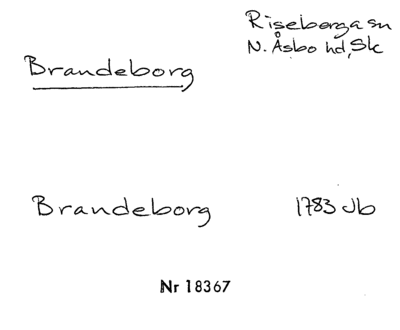 Riseberga sn
N. Åsbo hd, Sk
Brandeborg
Brandeborg 1783 Jb
Nr 18367